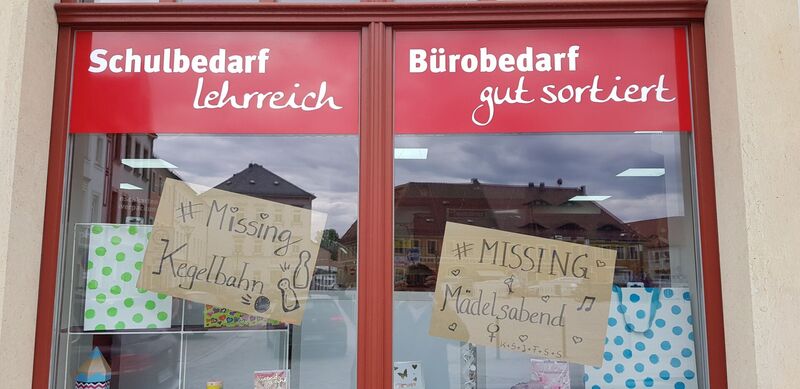 Schulbedarf
lehrreich
Bürobedarf
gut sortiert
# Missing
Kegelbahn
# MISSING
Mädelsabend
K+S+J+F+S+S